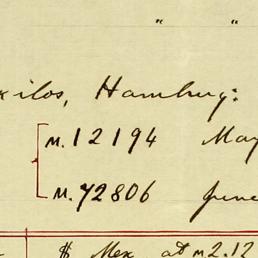 " "
Hamburg:
M. 12194 May
M. 72806 June
$ Mex at M2.12